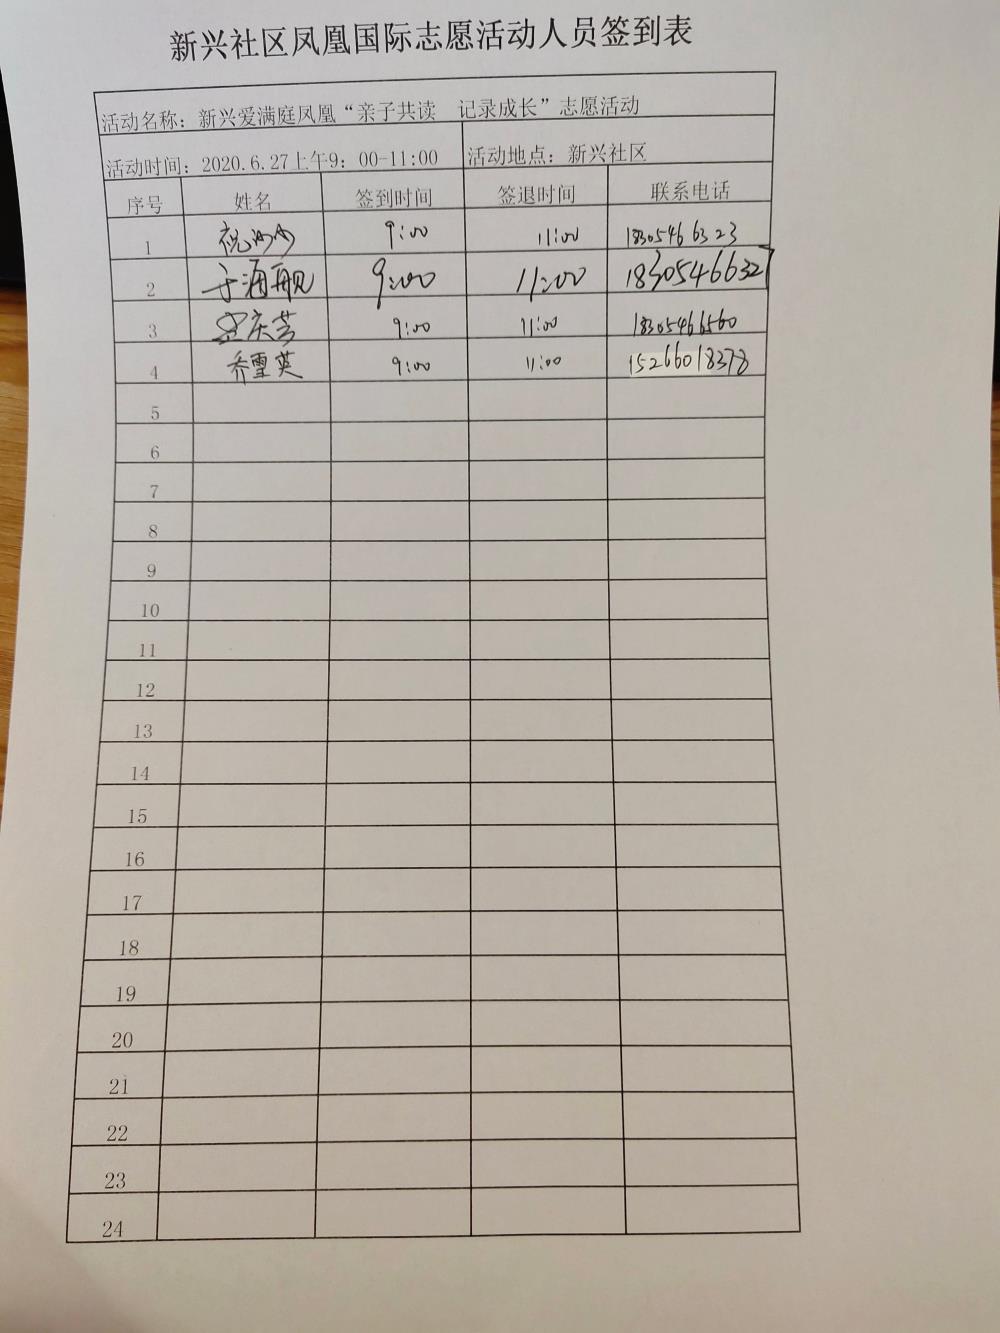 新兴社区凤凰国际志愿活动人员签到表
活动名称：新兴爱满庭凤凰“亲子共读 记录成长”志愿活动
活动时间：2020.6.27上午9：00-11:00 活动地点：新兴社区
序号 姓名 签到时间 签退时间 联系电话
1 祝 9:00 11:00 18305466323
2 于海舰 9:00 11:00 18305466327
3 庆芸 9:00 11:00 18305466560
4 乔雪英 9:00 11:00 15266018378
5
6
7
8
9
10
11
12
13
14
15
16
17
18
19
20
21
22
23
24